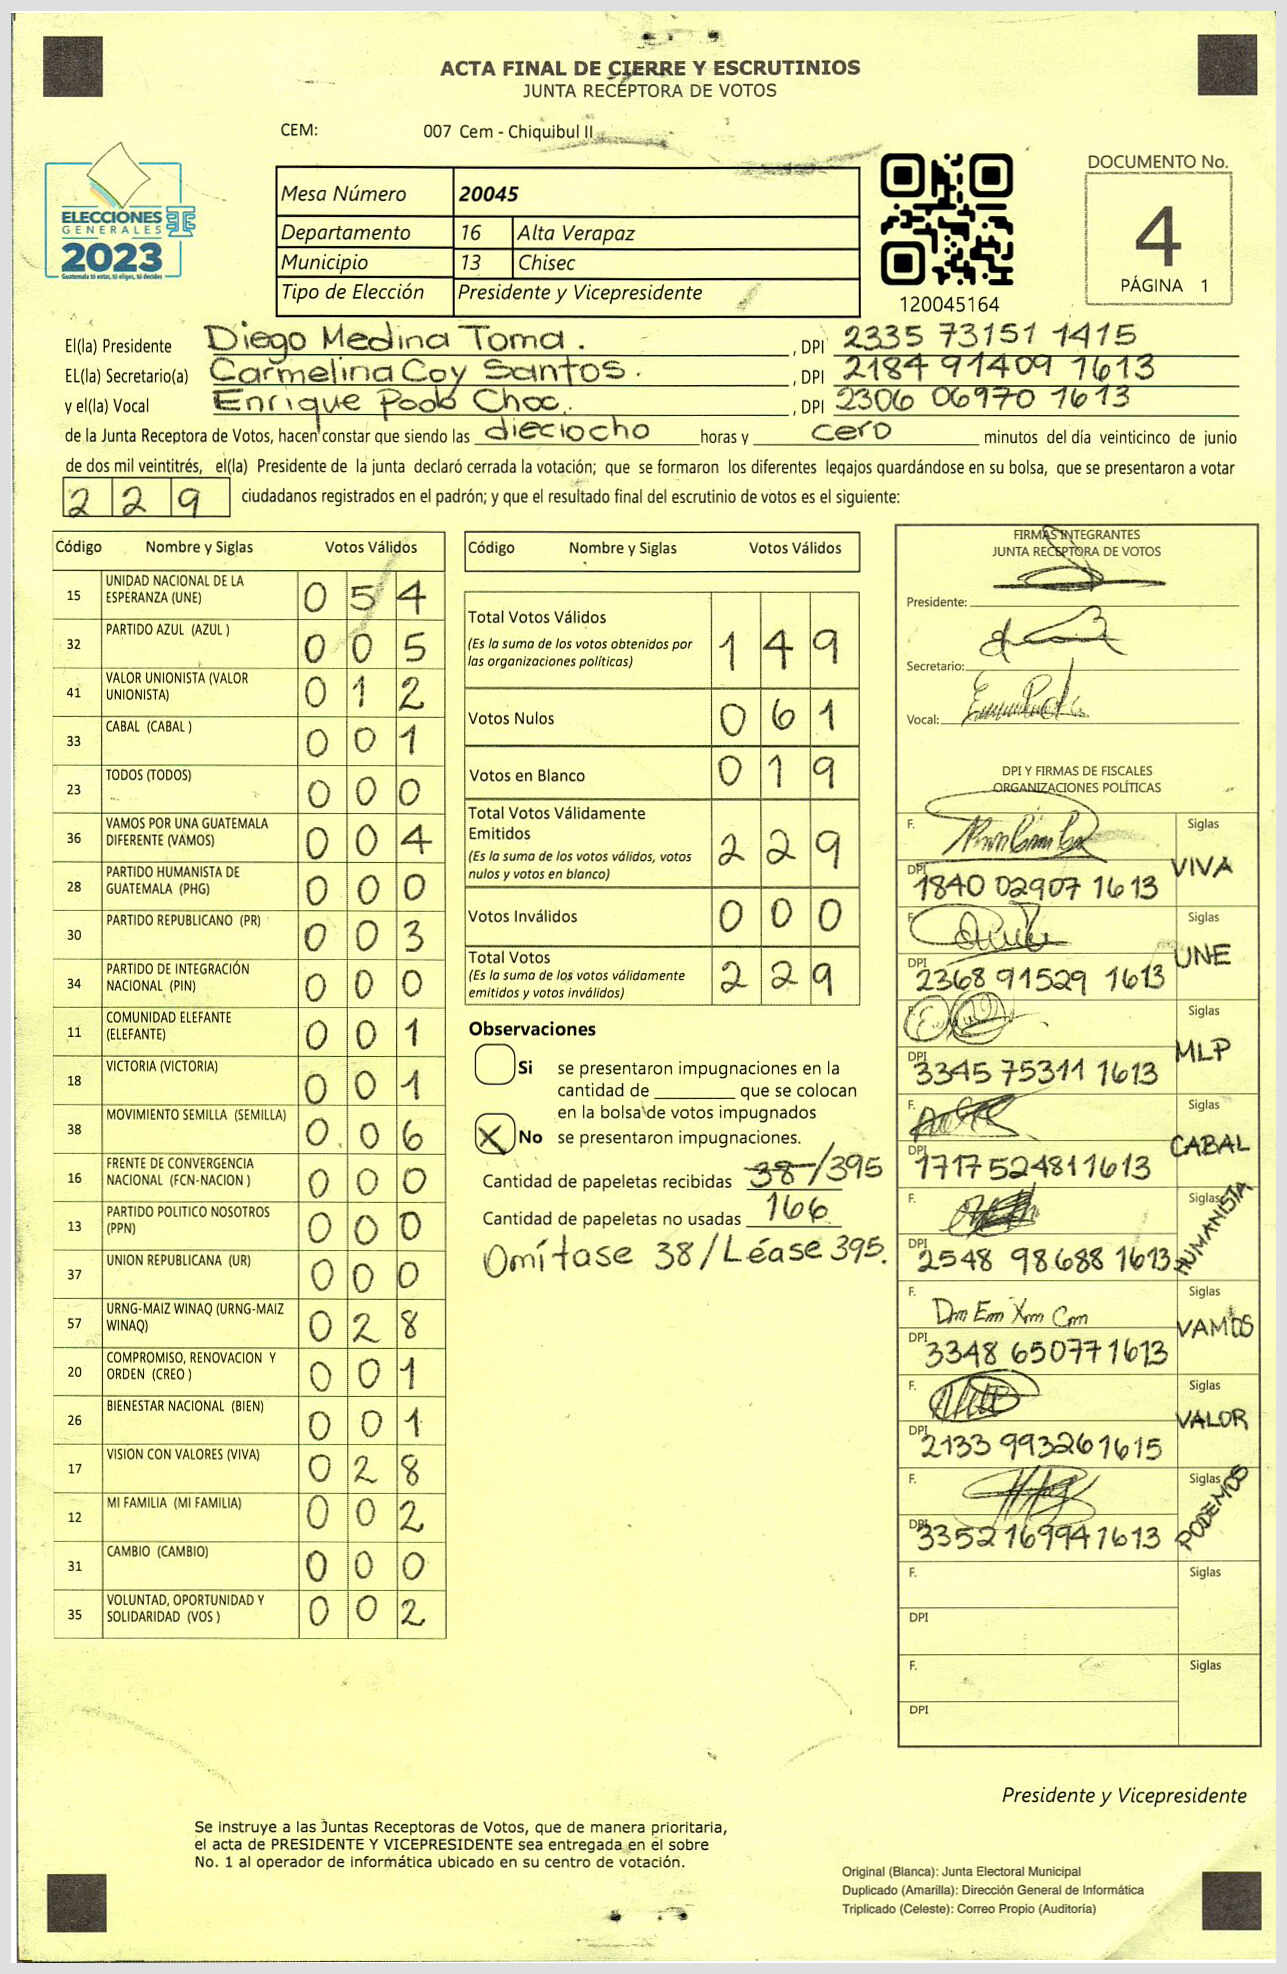 ACTA FINAL DE CIERRE Y ESCRUTINIOS
JUNTA RECEPTORA DE VOTOS
CEM: 007 Cem - Chiquibul II
ELECCIONES
GENERALES
2023
Guatemala tú estas, tú eliges, tú decides
Mesa Número 20045
Departamento 16 Alta Verapaz
Municipio 13 Chisec
Tipo de Elección Presidente y Vicepresidente
120045164
DOCUMENTO No.
4
PÁGINA 1
El(la) Presidente Diego Medina Toma. , DPI 2335 73151 1415
EL(la) Secretario(a) Carmelina Coy Santos. , DPI 2184 91409 1613
y el(la) Vocal Enrique Choc. , DPI 2306 06970 1613
de la Junta Receptora de Votos, hacen constar que siendo las dieciocho horas y cero minutos del día veinticinco de junio
de dos mil veintitrés, el(la) Presidente de la junta declaró cerrada la votación; que se formaron los diferentes legajos guardándose en su bolsa, que se presentaron a votar
229 ciudadanos registrados en el padrón; y que el resultado final del escrutinio de votos es el siguiente:
Código Nombre y Siglas Votos Válidos
15 UNIDAD NACIONAL DE LA ESPERANZA (UNE) 0 5 4
32 PARTIDO AZUL (AZUL ) 0 0 5
41 VALOR UNIONISTA (VALOR UNIONISTA) 0 1 2
33 CABAL (CABAL ) 0 0 1
23 TODOS (TODOS) 0 0 0
36 VAMOS POR UNA GUATEMALA DIFERENTE (VAMOS) 0 0 4
28 PARTIDO HUMANISTA DE GUATEMALA (PHG) 0 0 0
30 PARTIDO REPUBLICANO (PR) 0 0 3
34 PARTIDO DE INTEGRACIÓN NACIONAL (PIN) 0 0 0
11 COMUNIDAD ELEFANTE (ELEFANTE) 0 0 1
18 VICTORIA (VICTORIA) 0 0 1
38 MOVIMIENTO SEMILLA (SEMILLA) 0 0 6
16 FRENTE DE CONVERGENCIA NACIONAL (FCN-NACION ) 0 0 0
13 PARTIDO POLITICO NOSOTROS (PPN) 0 0 0
37 UNION REPUBLICANA (UR) 0 0 0
57 URNG-MAIZ WINAQ (URNG-MAIZ WINAQ) 0 2 8
20 COMPROMISO, RENOVACION Y ORDEN (CREO ) 0 0 1
26 BIENESTAR NACIONAL (BIEN) 0 0 1
17 VISION CON VALORES (VIVA) 0 2 8
12 MI FAMILIA (MI FAMILIA) 0 0 2
31 CAMBIO (CAMBIO) 0 0 0
35 VOLUNTAD, OPORTUNIDAD Y SOLIDARIDAD (VOS ) 0 0 2
Código Nombre y Siglas Votos Válidos
Total Votos Válidos 1 4 9
(Es la suma de los votos obtenidos por
las organizaciones políticas)
Votos Nulos 0 6 1
Votos en Blanco 0 1 9
Total Votos Válidamente
Emitidos 2 2 9
(Es la suma de los votos válidos, votos
nulos y votos en blanco)
Votos Inválidos 0 0 0
Total Votos 2 2 9
(Es la suma de los votos válidamente
emitidos y votos inválidos)
Observaciones
Si se presentaron impugnaciones en la
cantidad de ________ que se colocan
en la bolsa de votos impugnados
X No se presentaron impugnaciones.
Cantidad de papeletas recibidas 38/395
Cantidad de papeletas no usadas 166
Omítase 38/Léase 395.
FIRMAS INTEGRANTES
JUNTA RECEPTORA DE VOTOS
Presidente:
Secretario:
Vocal:
DPI Y FIRMAS DE FISCALES
ORGANIZACIONES POLÍTICAS
F. Siglas VIVA
DPI 1840 02907 1613
F. Siglas UNE
DPI 2368 91529 1613
Siglas MLP
DPI 3345 75311 1613
F. Siglas CABAL
DPI 1717 52481 1613
F. Siglas HUMANISTA
DPI 2548 98688 1613
F. Dm Em Xm Cm Siglas VAMOS
DPI 3348 65077 1613
F. Siglas VALOR
DPI 2133 99326 1615
F. Siglas PODEMOS
DPI 3352 16994 1613
F. Siglas
DPI
F. Siglas
DPI
Presidente y Vicepresidente
Se instruye a las Juntas Receptoras de Votos, que de manera prioritaria,
el acta de PRESIDENTE Y VICEPRESIDENTE sea entregada en el sobre
No. 1 al operador de informática ubicado en su centro de votación.
Original (Blanca): Junta Electoral Municipal
Duplicado (Amarilla): Dirección General de Informática
Triplicado (Celeste): Correo Propio (Auditoría)